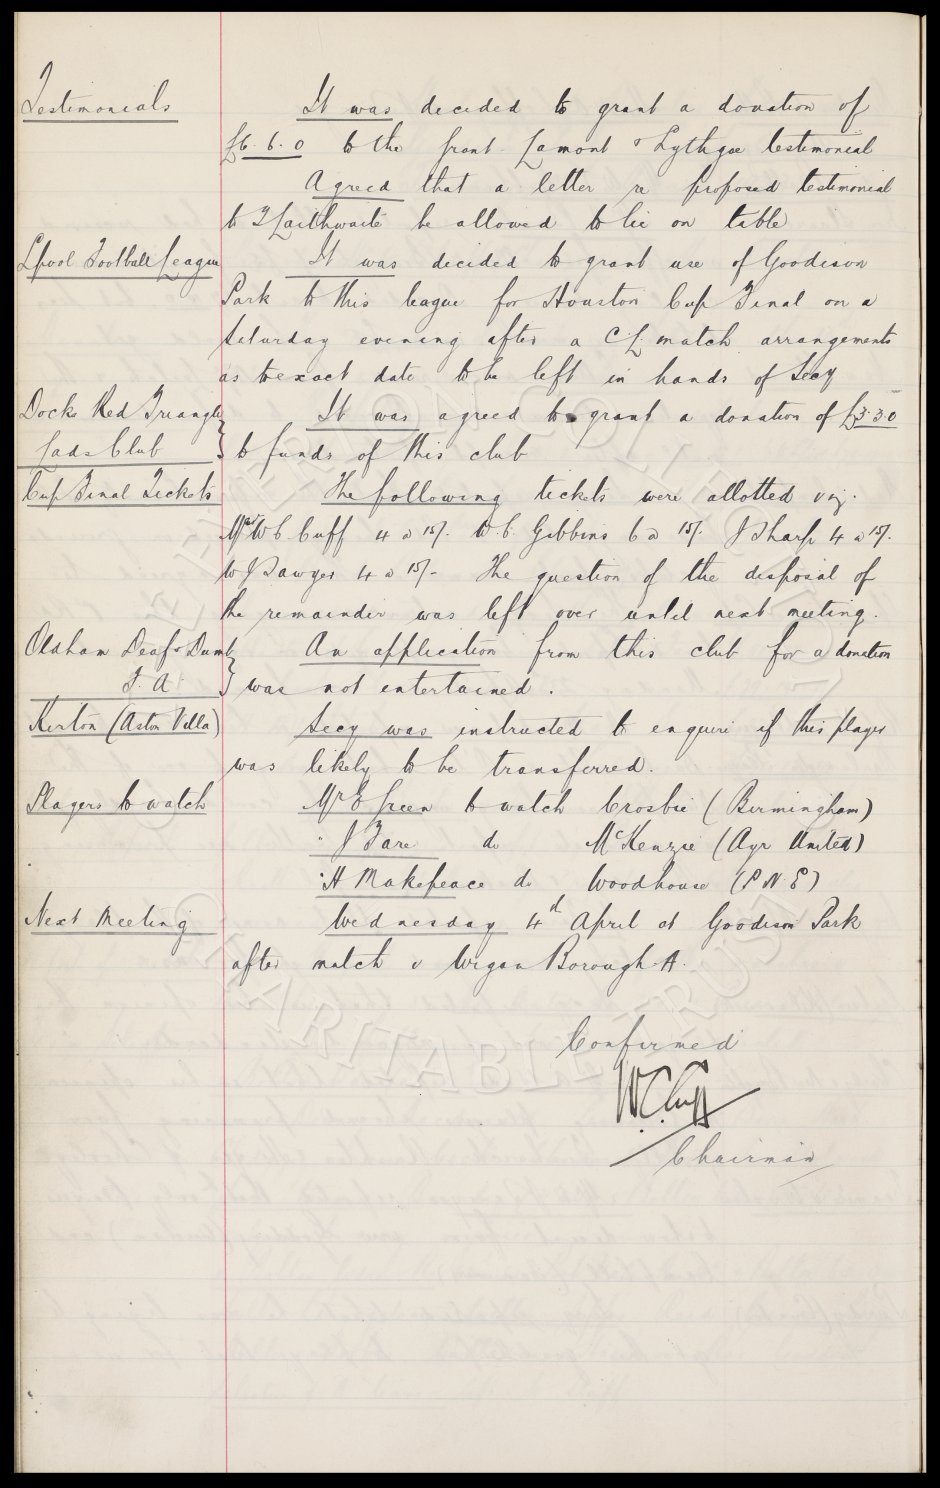 Testimonials It was decided to grant a donation of
£6. 6. 0 to the Grant Lamont & Lythgoe testimonial
Agreed that a letter re proposed testimonial
to T Laithwaite be allowed to lie on table
Lpool Football League It was decided to grant use of Goodison
Park to this league for Houston Cup Final on a
Saturday evening after a C.L. match arrangements
as to exact date to be left in hands of Secy
Docks Red Triangle It was agreed to grant a donation of £3.3.0
Lads Club } to funds of this club
Cup Final Tickets The following tickets were allotted viz.
W.C. Cuff 4 @ 15/-. W.C. Gibbins 6 @ 15/-. J Sharp 4 @ 15/-.
W J Sawyer 4 @ 15/- The question of the disposal of
the remainder was left over until next meeting.
Oldham Deaf & Dumb An application from this club for a donation
F.A. } was not entertained.
Kirton (Aston Villa) Secy was instructed to enquire if this player
was likely to be transferred.
Players to watch Mr E Green to watch Crosbie (Birmingham)
" J Fare do McKenzie (Ayr United)
" H Makepeace do Woodhouse (P.N.E)
Next Meeting Wednesday 4th April at Goodison Park
after match v Wigan Borough A.
Confirmed
W.C. Cuff
Chairman
EVERTON COLLECTION
CHARITABLE TRUST